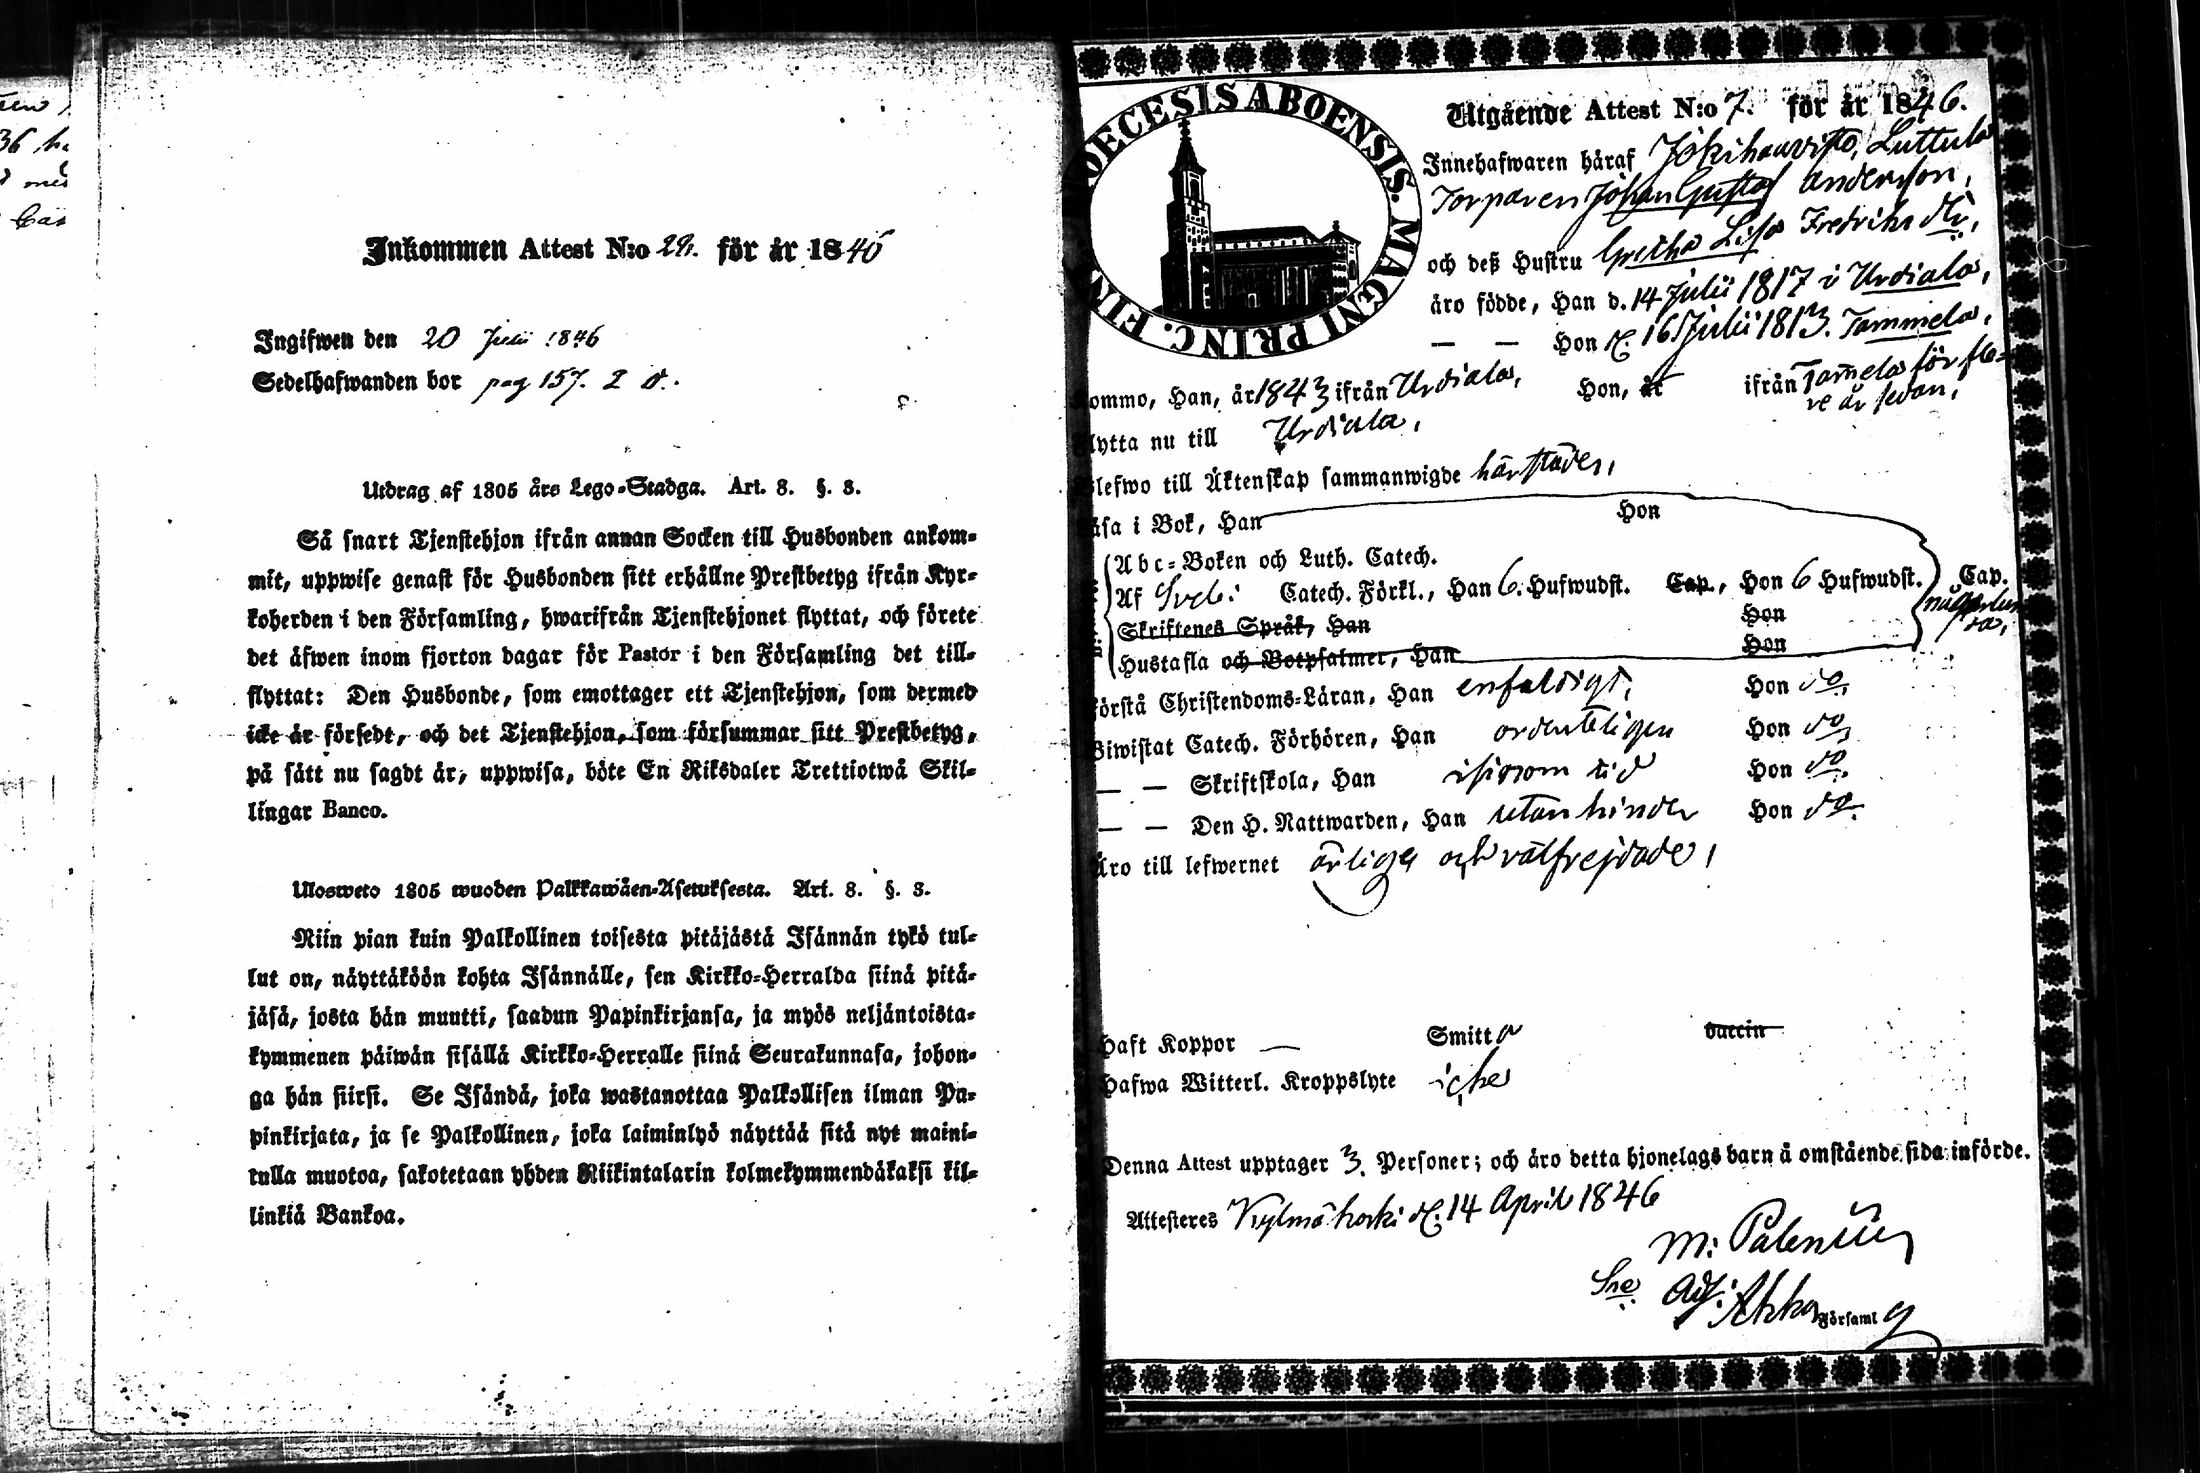 36
Inkommen Attest N:o 28. för år 1846
Ingifwen den 20 Julii 1846
Sedelhafwanden bor pag 157.
Utdrag af 1805 års Lego-Stadga. Art. 8. §. 3.
Så snart Tjenstehjon ifrån annan Socken till Husbonden ankom-
mit, uppwise genast för Husbonden sitt erhållne Prestbetyg ifrån Kyr-
koherden i den Församling, hwarifrån Tjenstehjonet flyttat, och förete
det äfwen inom fjorton dagar för Pastor i den Församling det till-
flyttat: Den Husbonde, som emottager ett Tjenstehjon, som dermed
icke är försedt, och det Tjenstehjon, som försummar sitt Prestbetyg,
på sätt nu sagdt är, uppwisa, böte En Riksdaler Trettiotwå Skil-
lingar Banco.
Ulosweto 1805 wuoden Palkkawäen-Asetuksesta. Art. 8. §. 3.
Niin pian kuin Palkollinen toisesta pitäjästä Isännän tykö tul-
lut on, näyttäköön kohta Isännälle, sen Kirkko-Herralda siinä pitä-
jäsä, josta hän muutti, saadun Papinkirjansa, ja myös neljäntoista-
kymmenen päiwän sisällä Kirkko-Herralle siinä Seurakunnasa, johon-
ga hän siirsi. Se Isändä, joka wastanottaa Palkollisen ilman Pa-
pinkirjata, ja se Palkollinen, joka laiminlyö näyttää sitä nyt maini-
tulla muotoa, sakotetaan yhden Riikintalarin kolmekymmendäkaksi kil-
linkiä Bankoa.
OECESIS ABOENSIS. MAGNI PRINC. FIN
Utgående Attest N:o 7. för år 1846.
Innehafwaren häraf Luttula
Torparen Johan Gustaf Andersson,
och deß Hustru Gretha Lisa Fredriks dr.,
äro födde, Han d. 14 Julii 1817 i Urdiala,
— — Hon d. 16 Julii 1813. Tammela,
ommo, Han, år 1843 ifrån Urdiala, Hon, år ifrån Tammela för fle-
re år sedan,
lytta nu till Urdiala,
lefwo till Äktenskap sammanwigde härstädes,
äsa i Bok, Han Hon
Abc-Boken och Luth. Catech.
Af Sveb: Catech. Förkl., Han 6. Hufwudst. Cap., Hon 6 Hufwudst. Cap.
Skriftenes Språk, Han Hon
Hustafla och Botpsalmer, Han Hon
örstå Christendoms-Läran, Han enfaldigt, Hon do,
Biwistat Catech. Förhören, Han ordenteligen Hon do,
— — Skriftskola, Han i sinom tid Hon do.
— — Den H. Nattwarden, Han utan hinder Hon do.
Äro till lefwernet ärliga och välfrejdade,
Haft Koppor — Smitta vaccin
Hafwa Witterl. Kroppslyte icke
Denna Attest upptager 3. Personer; och äro detta hjonelags barn å omstående sida införde.
Attesteres Kylmäkoski d. 14 April 1846
M: Palenius
Adj: Akka Församl g